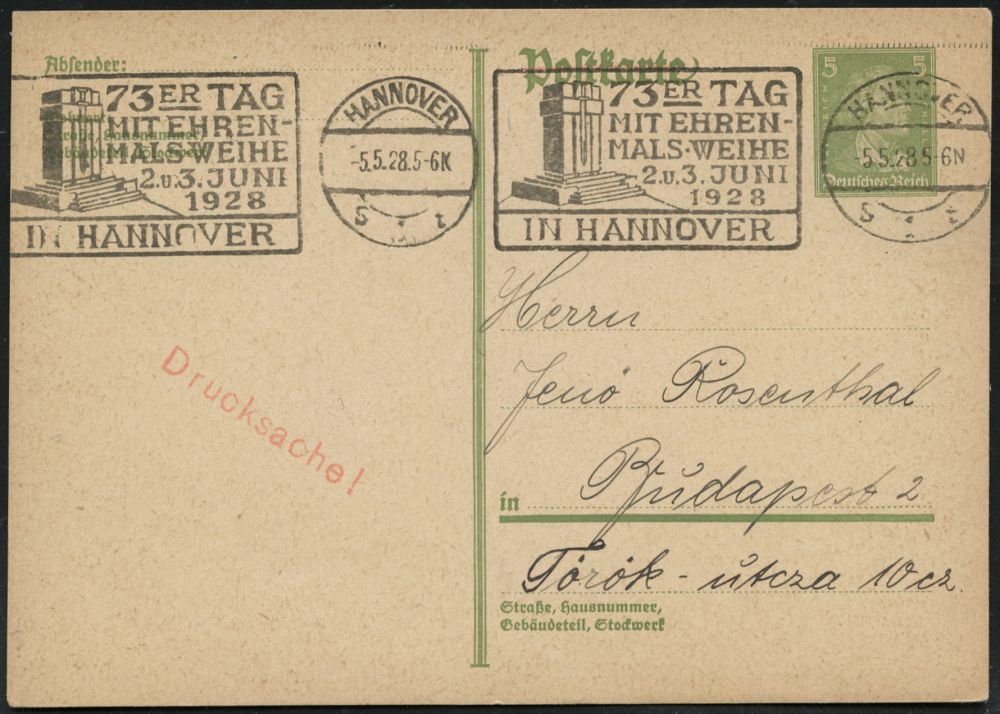 Absender:
73ER TAG
MIT EHREN-
MALS-WEIHE
2. u. 3. JUNI
1928
IN HANNOVER
Straße, Hausnummer
HANNOVER
-5.5.28.5-6N
S 1 t
Postkarte
73ER TAG
MIT EHREN-
MALS-WEIHE
2. u. 3. JUNI
1928
IN HANNOVER
5 5
Deutsches Reich
HANNOVER
-5.5.28.5-6N
S 1 t
Drucksache!
Herrn
Jenö Rosenthal
in Budapest 2
Török-utcza 10 cz.
Straße, Hausnummer,
Gebäudeteil, Stockwerk